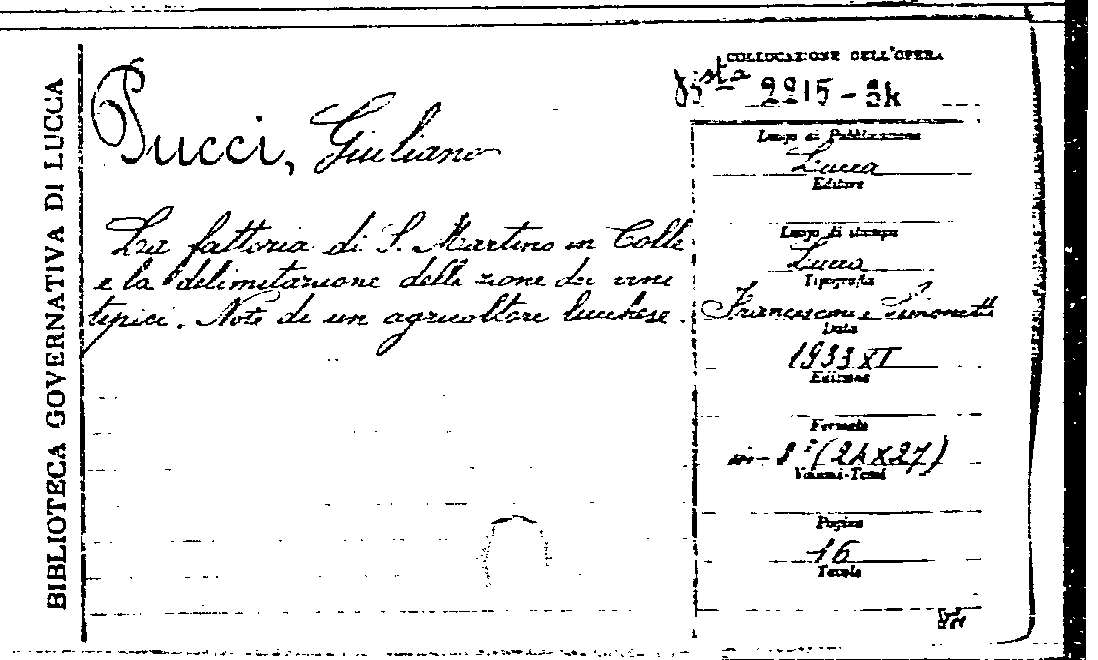 BIBLIOTECA GOVERNATIVA DI LUCCA
Pucci, Giuliano
La fattoria di S. Martino in Colle
e la delimitazione delle zone dei vini
tipici. Note di un agricoltore lucchese.
COLLOCAZIONE DELL'OPERA
2215-
Luogo di Pubblicazione
Lucca
Editore
Luogo di stampa
Lucca
Tipografia
Francesconi e Simonetti
Data
1933 XI
Edizione
Formato
in-8° (24x27)
Volumi-Tomi
Pagine
16
Tavole